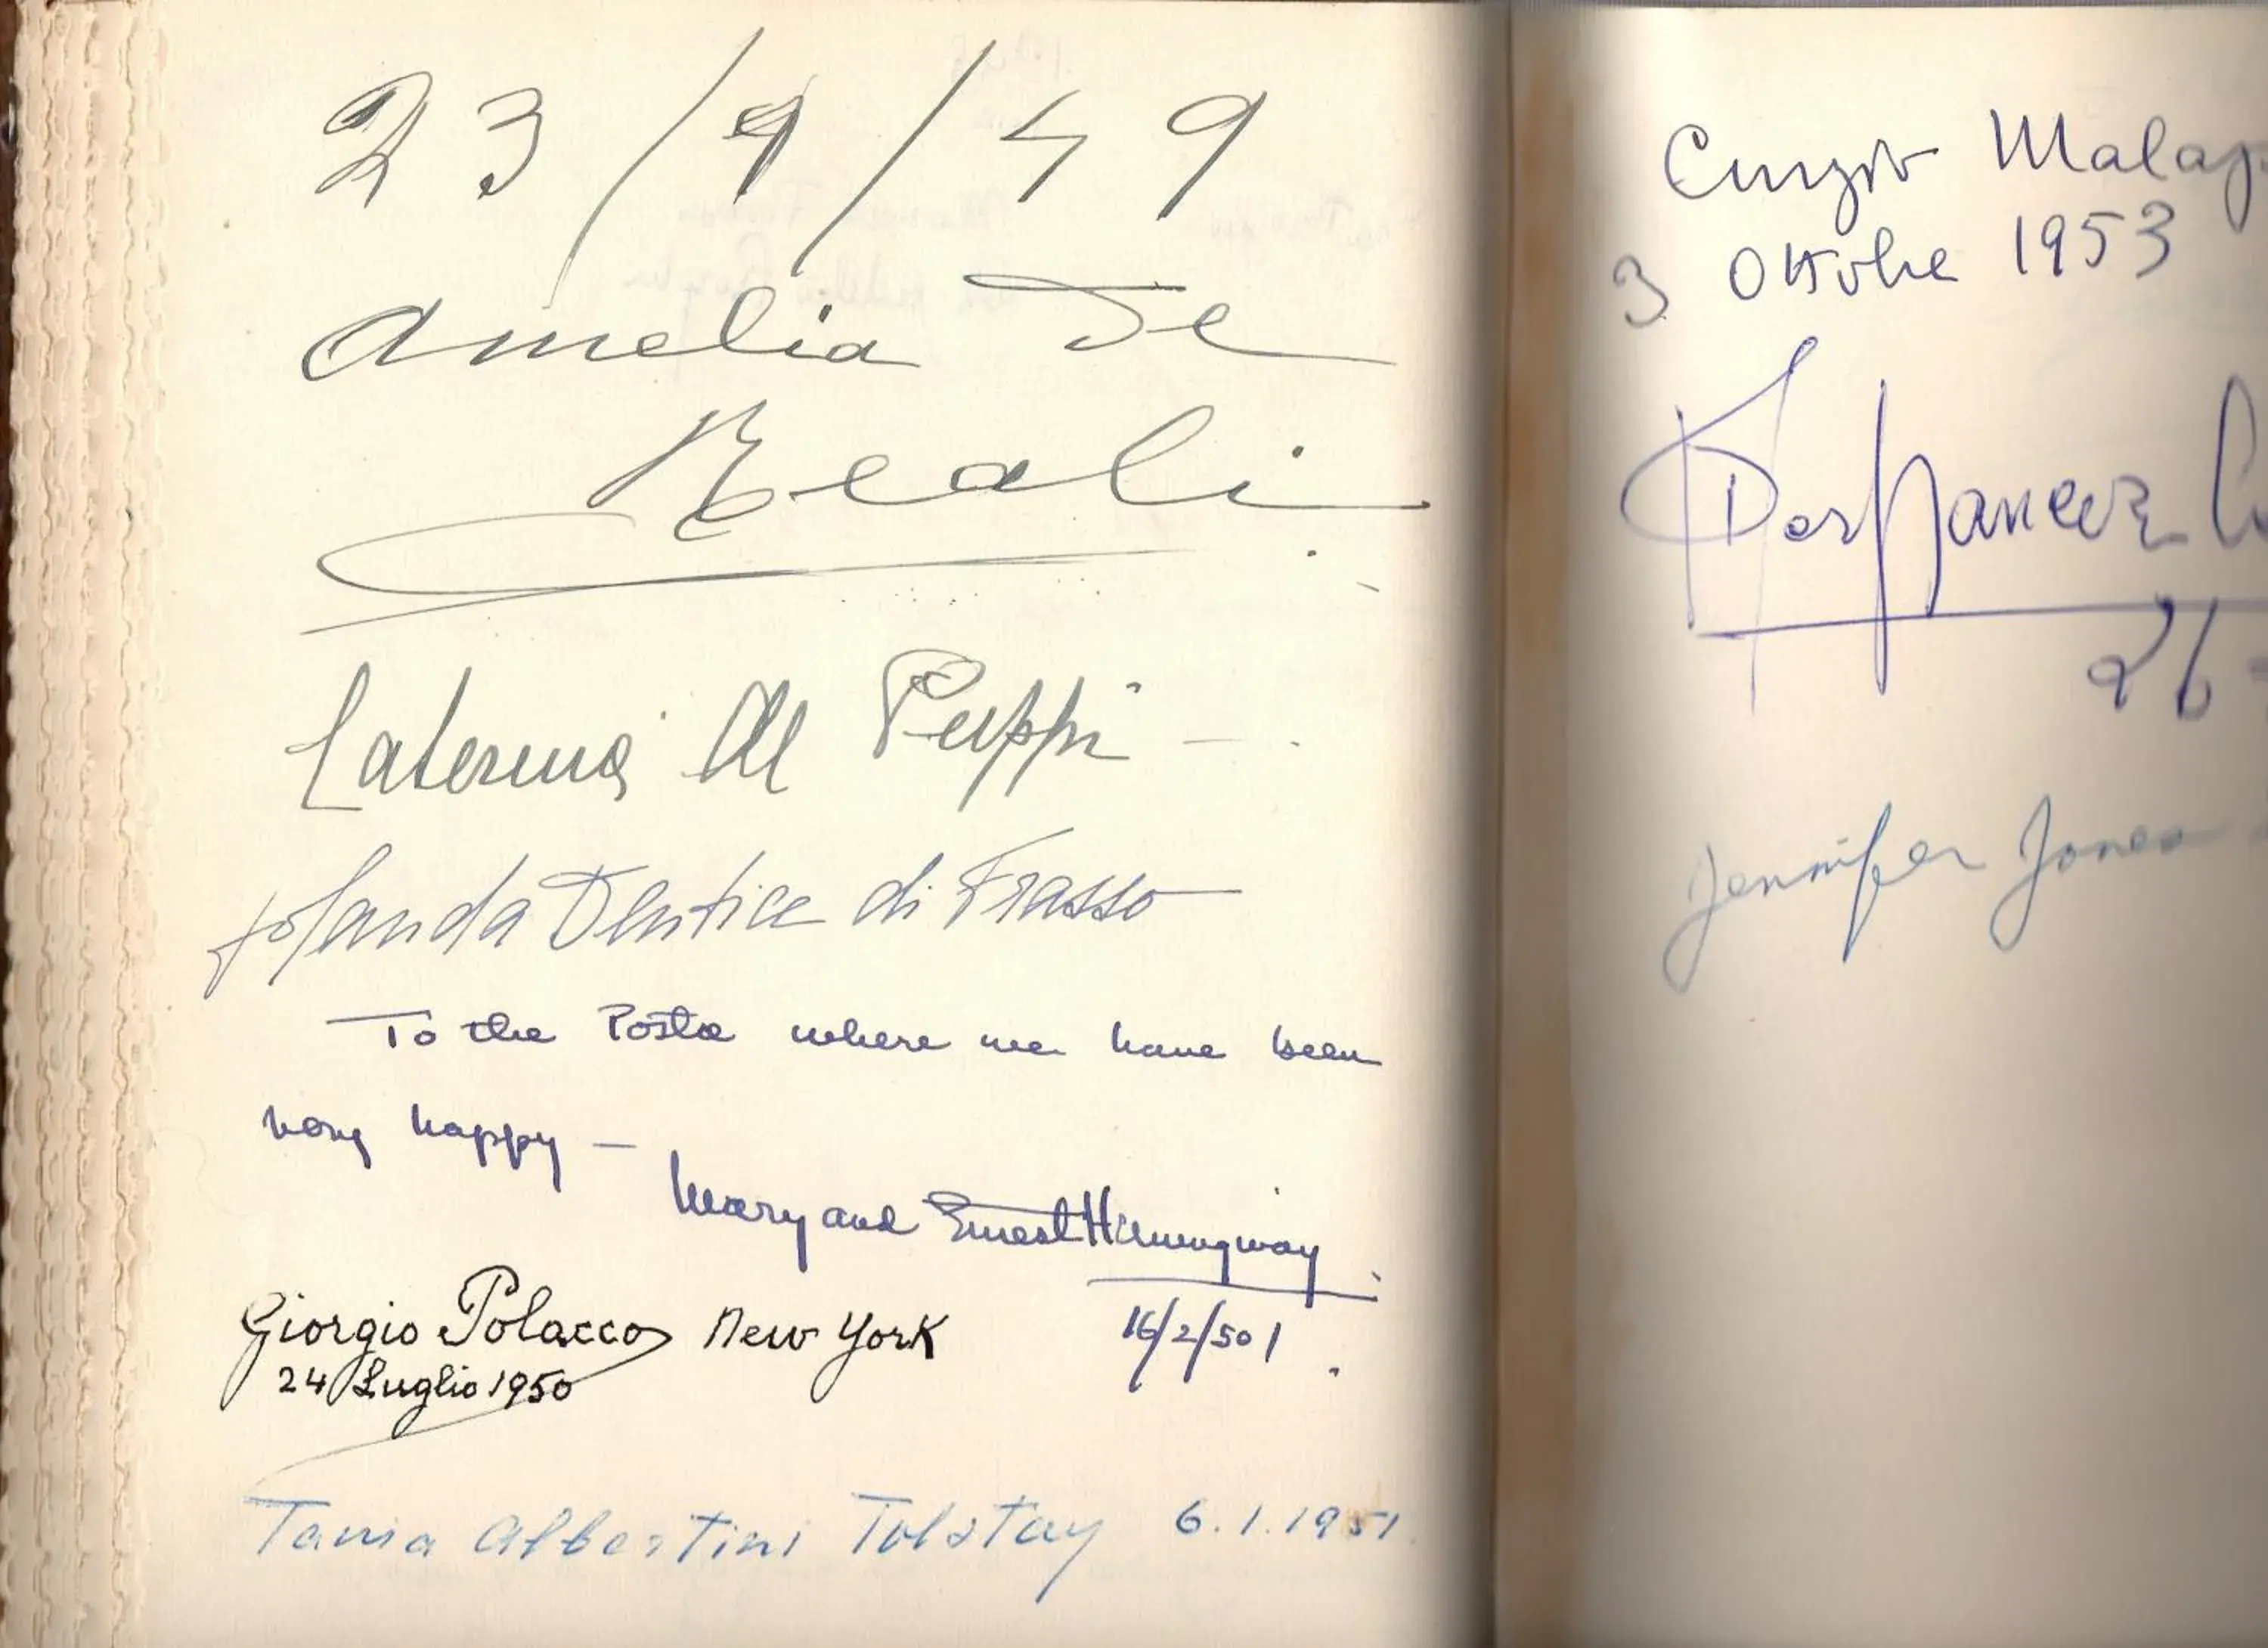 23/9/49
Amelia De
Reali
Caterina di
Jolanda Dentice di Frasso
To the Posta where we have been
very happy —
Mary and Ernest Hemingway
16/2/50
Giorgio Polacco New York
24 Luglio 1950
Tania Albertini Tolstoy 6.1.1951
Curzio Malap
3 Ottobre 1953
26-
Jennifer Jones